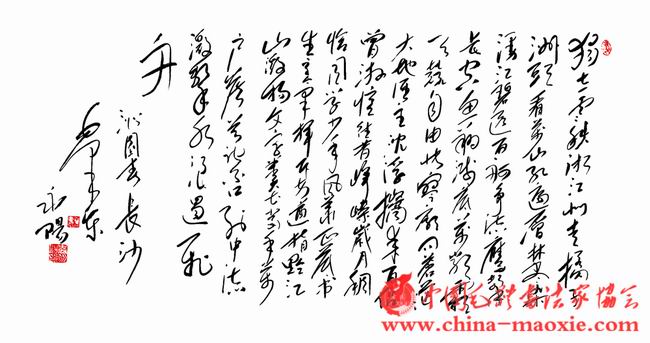 独立寒秋湘江北去橘子
洲头看萬山红遍層林尽染
漫江碧透百舸争流鹰击
长空鱼翔浅底萬类霜
天竞自由怅寥廓问苍茫
大地谁主沉浮携来百侣
曾游忆往昔峥嵘岁月稠
恰同学少年风华正茂书
生意气挥斥方遒指点江
山激扬文字粪土当年万
户侯曾记否到中流
击水浪遏飞
舟
沁园春长沙
毛泽东
中国毛体书法家协会
www.china-maoxie.com